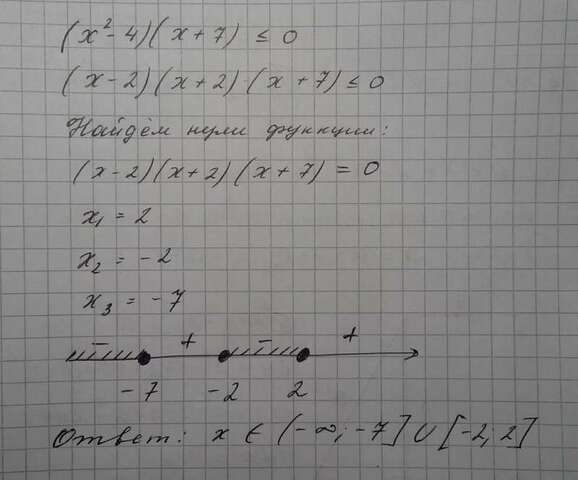 (x² - 4)(x + 7) ≤ 0
(x - 2)(x + 2)·(x + 7) ≤ 0
Найдём нули функции:
(x - 2)(x + 2)(x + 7) = 0
x₁ = 2
x₂ = - 2
x₃ = - 7
- + - +
- 7 - 2 2
Ответ: x ∈ (- ∞; - 7] ∪ [- 2; 2]